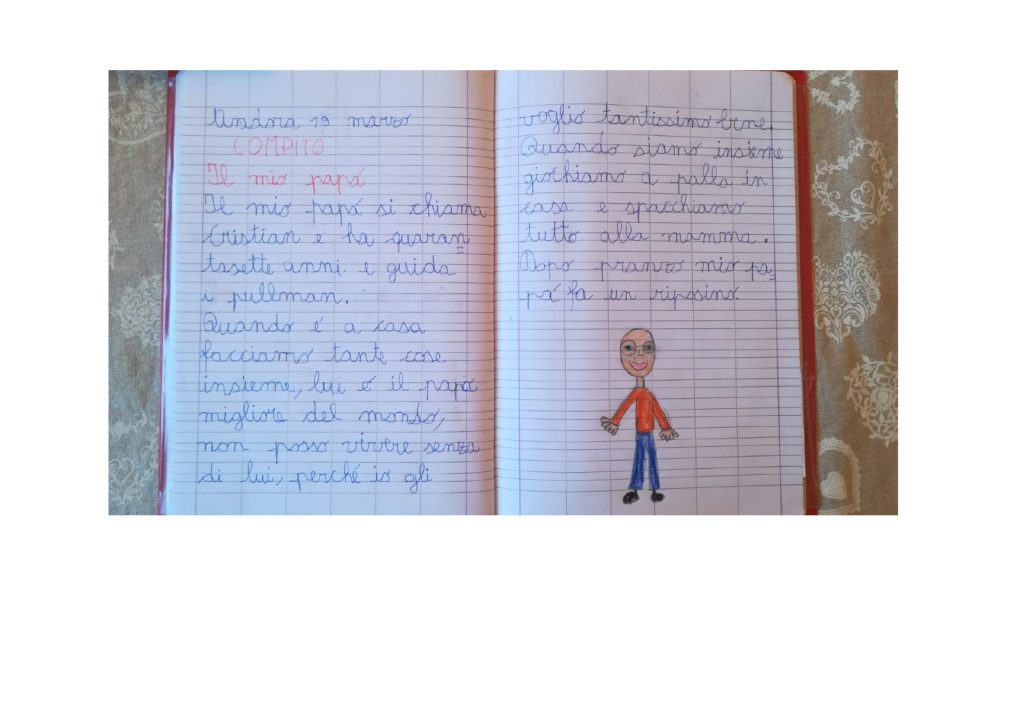 Andora 19 marzo
COMPITO
Il mio papá
Il mio papá si chiama
Cristian e ha quaran=
tasette anni e guida
i pullman.
Quando é a casa
facciamo tante cose
insieme, lui é il papá
migliore del mondo,
non posso vivere senza
di lui, perché io gli
voglio tantissimo bene.
Quando siamo insieme
giochiamo a palla in
casa e spacchiamo
tutto alla mamma.
Dopo pranzo mio pa=
pá fa un riposino.